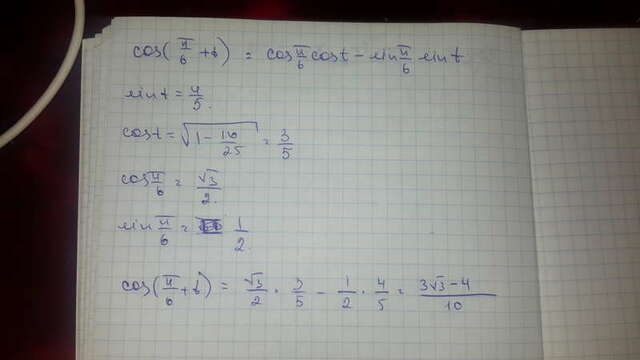 cos(π/6 + t) = cos π/6 cos t − sin π/6 sin t
sin t = 4/5.
cos t = √(1 − 16/25) = 3/5
cos π/6 = √3/2.
sin π/6 = 1/2.
cos(π/6 + t) = √3/2 · 3/5 − 1/2 · 4/5 = (3√3 − 4)/10